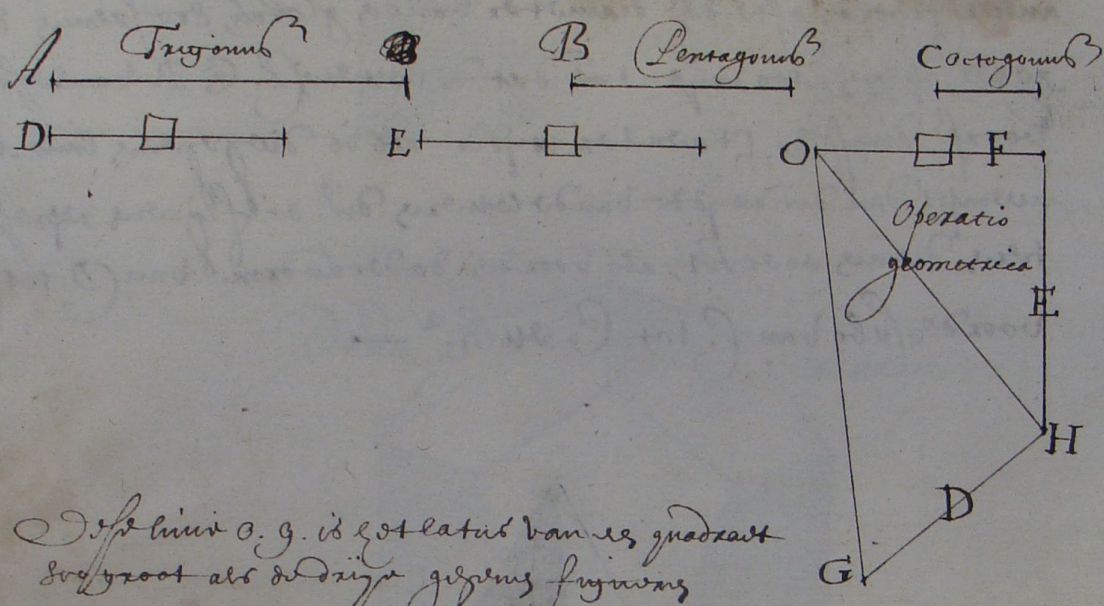 A Trigonus B Pentagonus C octogonus
D E O F
Operatio
geometrica
E
H
D
G
Dese linie O. g. is het latus van een quadraet
soo groot als de drije gegeven figueren